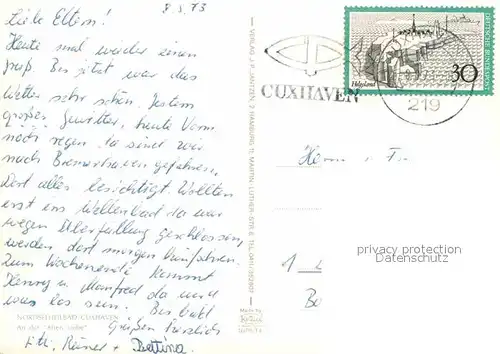 8.8.73
Liebe Eltern!
Heute mal wieder einen
Gruß. Bis jetzt war das
Wetter sehr schön. Gestern
großes Gewitter, heute Vorm.
noch regen. Da sind wir
nach Bremerhaven gefahren,
Dort alles besichtigt. Wollten
erst ins Wellenbad da war
wegen Überfüllung geschlossen,
werden dort morgen hinfahren.
Zum Wochenende kommt
Henry u. Manfred da wird
was los sein. Bis bald
Grüßen herzlich
Rainer + Bettina
NORDSEEHEILBAD CUXHAVEN
An der "Alten Liebe"
DEUTSCHE BUNDESPOST
Helgoland
30
CUXHAVEN
219
Herrn u. Fr
privacy protection
Datenschutz